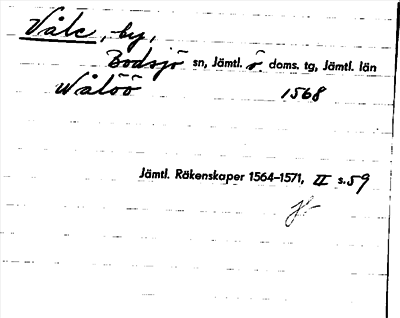 Våle, by,
Bodsjö sn, Jämtl. ö. doms. tg, Jämtl. län
Wålöö 1568
Jämtl. Räkenskaper 1564-1571, II s.59